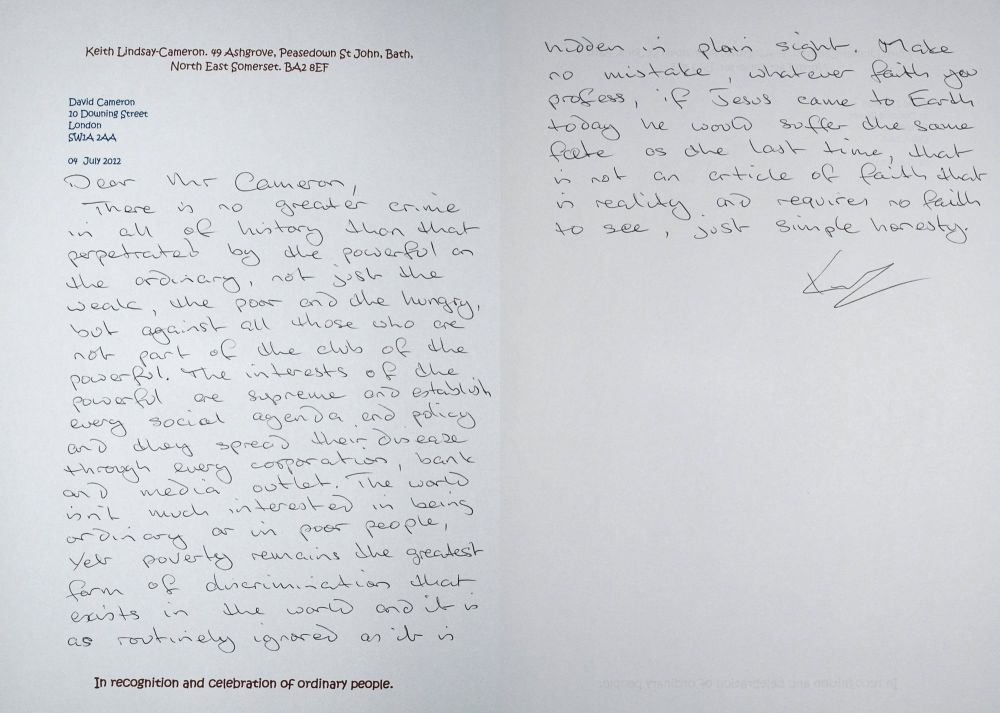 Keith Lindsay-Cameron. 49 Ashgrove, Peasedown St John, Bath,
North East Somerset. BA2 8EF
David Cameron
10 Downing Street
London
SW1A 2AA
04 July 2012
Dear Mr Cameron,
There is no greater crime
in all of history than that
perpetrated by the powerful on
the ordinary, not just the
weak, the poor and the hungry,
but against all those who are
not part of the club of the
powerful. The interests of the
powerful are supreme and establish
every social agenda and policy
and they spread their disease
through every corporation, bank
and media outlet. The world
isn't much interested in being
ordinary or in poor people,
yet poverty remains the greatest
form of discrimination that
exists in the world and it is
as routinely ignored as it is
In recognition and celebration of ordinary people.
hidden in plain sight. Make
no mistake, whatever faith you
profess, if Jesus came to Earth
today he would suffer the same
fate as the last time, that
is not an article of faith that
is reality and requires no faith
to see, just simple honesty.